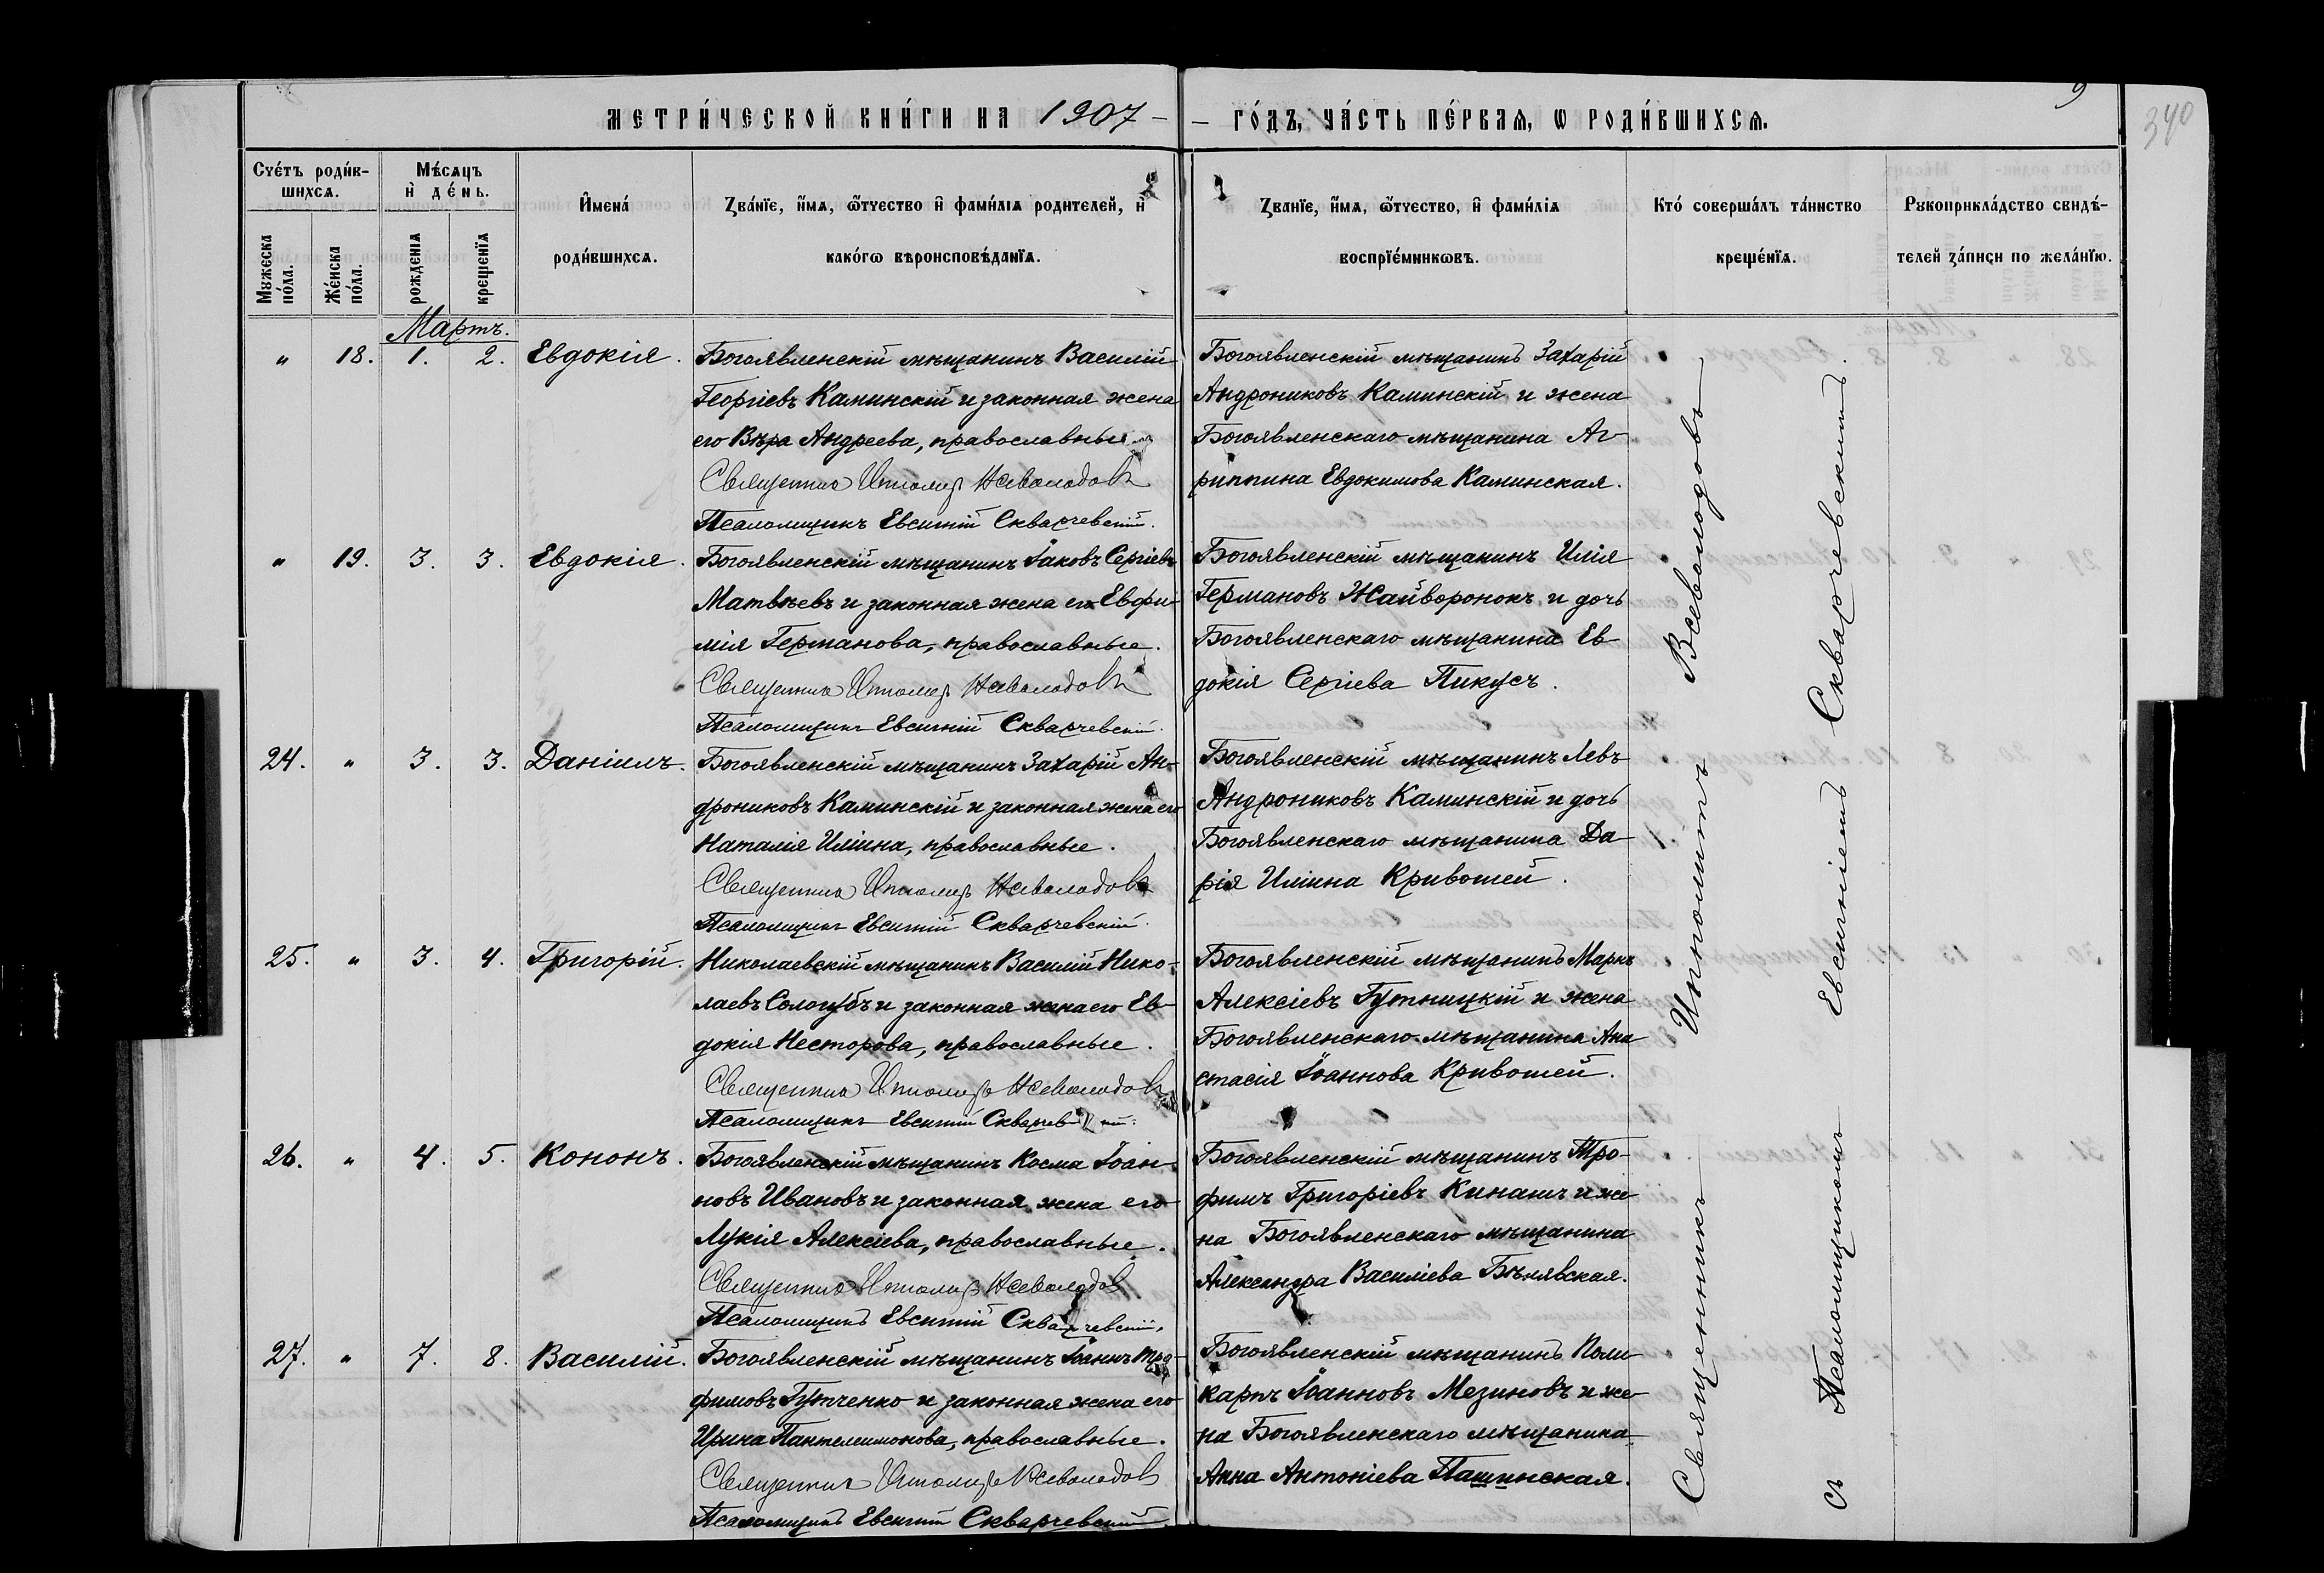 МЕТРИ́ЧЕСКОЙ КНИ́ГИ НА 1907 -
- ГО́ДЪ, ЧА́СТЬ ПЕ́РВАѦ, Ѡ РОДИ́ВШИХСѦ.
9
340
Сче́тъ роди́в-
шихсѧ.
Мужеска
по́ла.
Же́нска
по́ла.
Мѣ́сѧцъ
и҆ де́нь.
рожденїѧ
крещенїѧ
И҆мена́
роди́вшихсѧ.
Зва́нїе, и҆́мѧ, ѻ҆́тчество и҆ фами́лїѧ родителей, и҆
како́гѡ вѣроисповѣ́данїѧ.
Званїе, и҆́мѧ, ѻ҆́тчество, и҆ фами́лїѧ
воспрїе́мникѡвъ.
Кто́ соверша́лъ та́инство
креще́нїѧ.
Рукоприкла́дство свидѣ́-
телей за́писи по жела́нїю.
Мартъ.
" 18. 1. 2. Евдокія.
Богоявленскій мѣщанинъ Василій
Георгіевъ Каминскій и законная жена
его Вѣра Андреева, православные
Священникъ Ипполитъ Всеволодовъ
Псаломщикъ Евсигній Скварчевскій.
Богоявленскій мѣщанинъ Захарій
Андрониковъ Каминскій и жена
Богоявленскаго мѣщанина Аг-
риппина Евдокимова Каминская.
" 19. 3. 3. Евдокія.
Богоявленскій мѣщанинъ Іаковъ Сергіевъ
Матвѣевъ и законная жена его Евфи-
мія Германова, православные.
Священникъ Ипполитъ Всеволодовъ
Псаломщикъ Евсигній Скварчевскій.
Богоявленскій мѣщанинъ Илія
Германовъ Жайворонокъ и дочь
Богоявленскаго мѣщанина Ев-
докія Сергіева Пикусъ.
24. " 3. 3. Даніилъ.
Богоявленскій мѣщанинъ Захарій Ан-
дрониковъ Каминскій и законная жена его
Наталія Иліина, православные.
Священникъ Ипполитъ Всеволодовъ
Псаломщикъ Евсигній Скварчевскій.
Богоявленскій мѣщанинъ Левъ
Андрониковъ Каминскій и дочь
Богоявленскаго мѣщанина Да-
рія Иліина Кривошей.
25. " 3. 4. Григорій.
Николаевскій мѣщанинъ Василій Нико-
лаевъ Сологубъ и законная жена его Ев-
докія Несторова, православные.
Священникъ Ипполитъ Всеволодовъ
Псаломщикъ Евсигній Скварчевскій.
Богоявленскій мѣщанинъ Маркъ
Алексіевъ Гутницкій и жена
Богоявленскаго мѣщанина Ана
стасія Іоаннова Кривошей.
26. " 4. 5. Кононъ.
Богоявленскій мѣщанинъ Косма Іоан-
новъ Ивановъ и законная жена его
Лукія Алексіева, православные.
Священникъ Ипполитъ Всеволодовъ
Псаломщикъ Евсигній Скварчевскій.
Богоявленскій мѣщанинъ Тро-
фимъ Григоріевъ Кинашъ и же
на Богоявленскаго мѣщанина
Александра Василіева Бѣлявская.
27. " 7. 8. Василій.
Богоявленскій мѣщанинъ Іоаннъ Тро-
фимовъ Гутченко и законная жена его
Ирина Пантелеимонова, православные.
Священникъ Ипполитъ Всеволодовъ
Псаломщикъ Евсигній Скварчевскій.
Богоявленскій мѣщанинъ Поли-
карпъ Іоанновъ Мезиновъ и же-
на Богоявленскаго мѣщанина
Анна Антоніева Пашинская.
Священникъ Ипполитъ Всеволодовъ
съ Псаломщикомъ Евсигніемъ Скварчевскимъ.